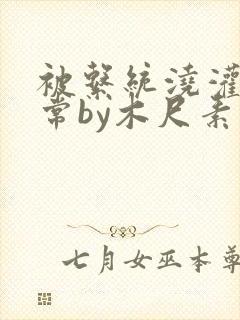 被繫統澆灌
常by木尺素
七月女巫本尊